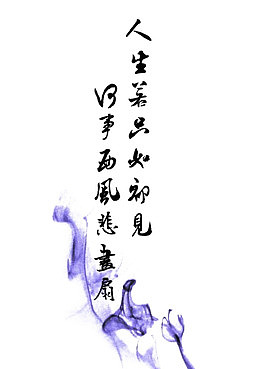 人生若只如初見
何事西風悲畫扇